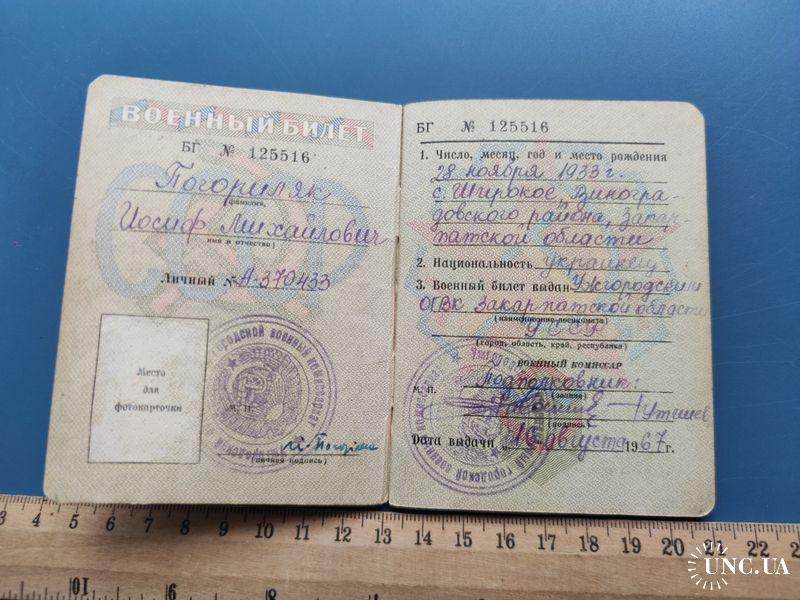 ВОЕННЫЙ БИЛЕТ
БГ № 125516
СССР
Погориляк
(фамилия,
Иосиф Михайлович
имя и отчество)
Личный № А-370433
Место
для
фотокарточки
М. П.
(личная подпись)
БГ № 125516
1. Число, месяц, год и место рождения
28 ноября 1933 г.
с. Широкое, Виногра-
довского района, Закар-
патской области
2. Национальность украинец
3. Военный билет выдан Ужгородским
ОГВК Закарпатской области
(наименование военкомата)
УССР
(город, область, край, республика)
ВОЕННЫЙ КОМИССАР
М. П.
Подполковник:
(звание)
(подпись)
Дата выдачи „16" августа 1967 г.
3 4 5 6 7 8 9 10 11 12 13 14 15 16 17 18 19 20 21 22 23
10 9 8
UNC.UA